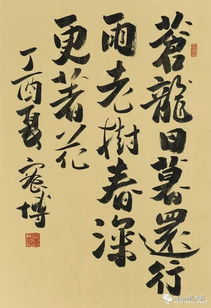 蒼龍日暮還行
雨老樹春深
更著花
丁酉夏宏博